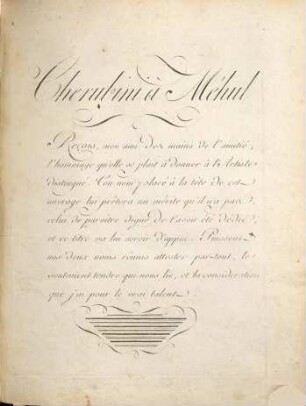 Cherubini à Méhul
Reçois, mon ami, des mains de l'amitié,
l'hommage qu'elle se plait à donner à l'Artiste
distingué. Ton nom placé à la tête de cet
ouvrage lui prêtera un mérite qu'il n'a pas,
celui de paroitre digne de t'avoir été dédié,
et ce titre va lui servir d'appui. Puissent
nos deux noms réunis attester par-tout, le
sentiment tendre qui nous lie, et la considération
que j'ai pour le vrai talent.